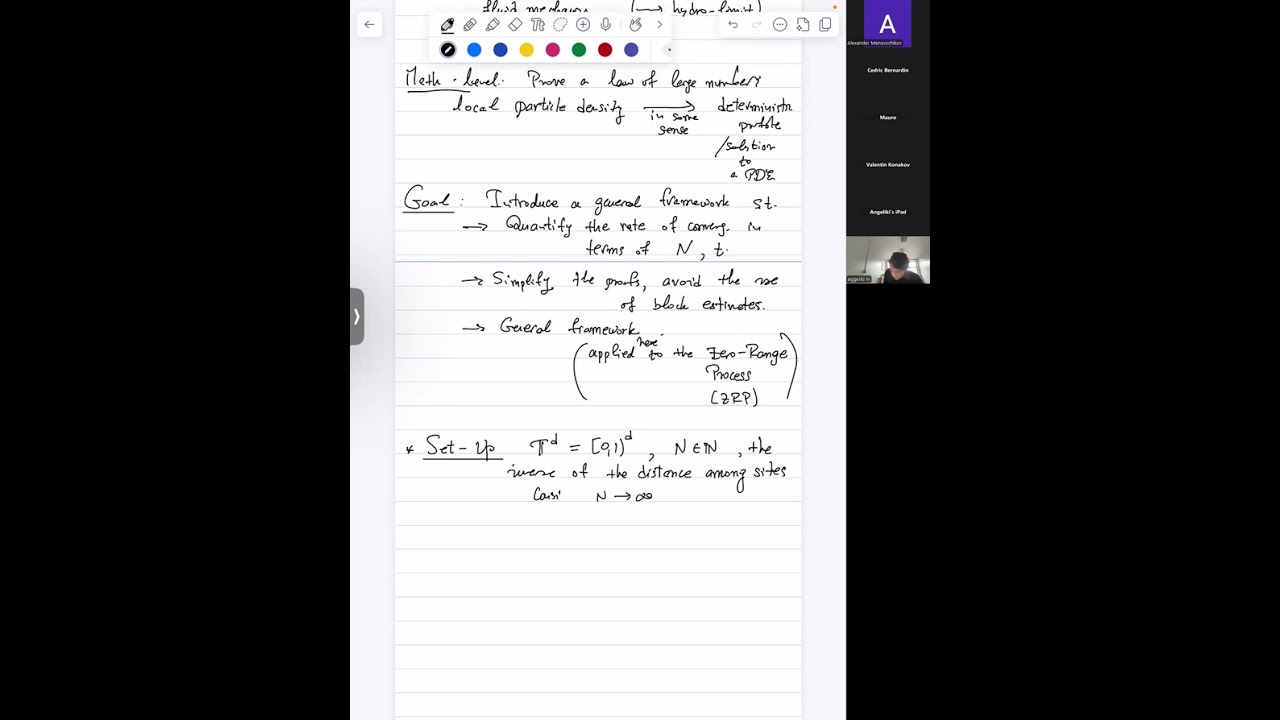 fluid mechan (⟶ hydro-limit)
Math. level: Prove a law of large numbers
local particle density ⟶ in some sense deterministic
profile
/solution
to
a PDE
Goal: Introduce a general framework st.
→ Quantify the rate of converg. in
terms of N, t.
→ Simplify the proofs, avoid the use
of block estimates.
→ General framework
(applied here to the Zero-Range
Process
(ZRP)
* Set-Up 𝕋^d = [0,1)^d, N∈ℕ, the
inverse of the distance among sites
N → ∞
A
Alexander Menovschikov
Cedric Bernardin
Mauro
Valentin Konakov
Angeliki's iPad
aggeliki m